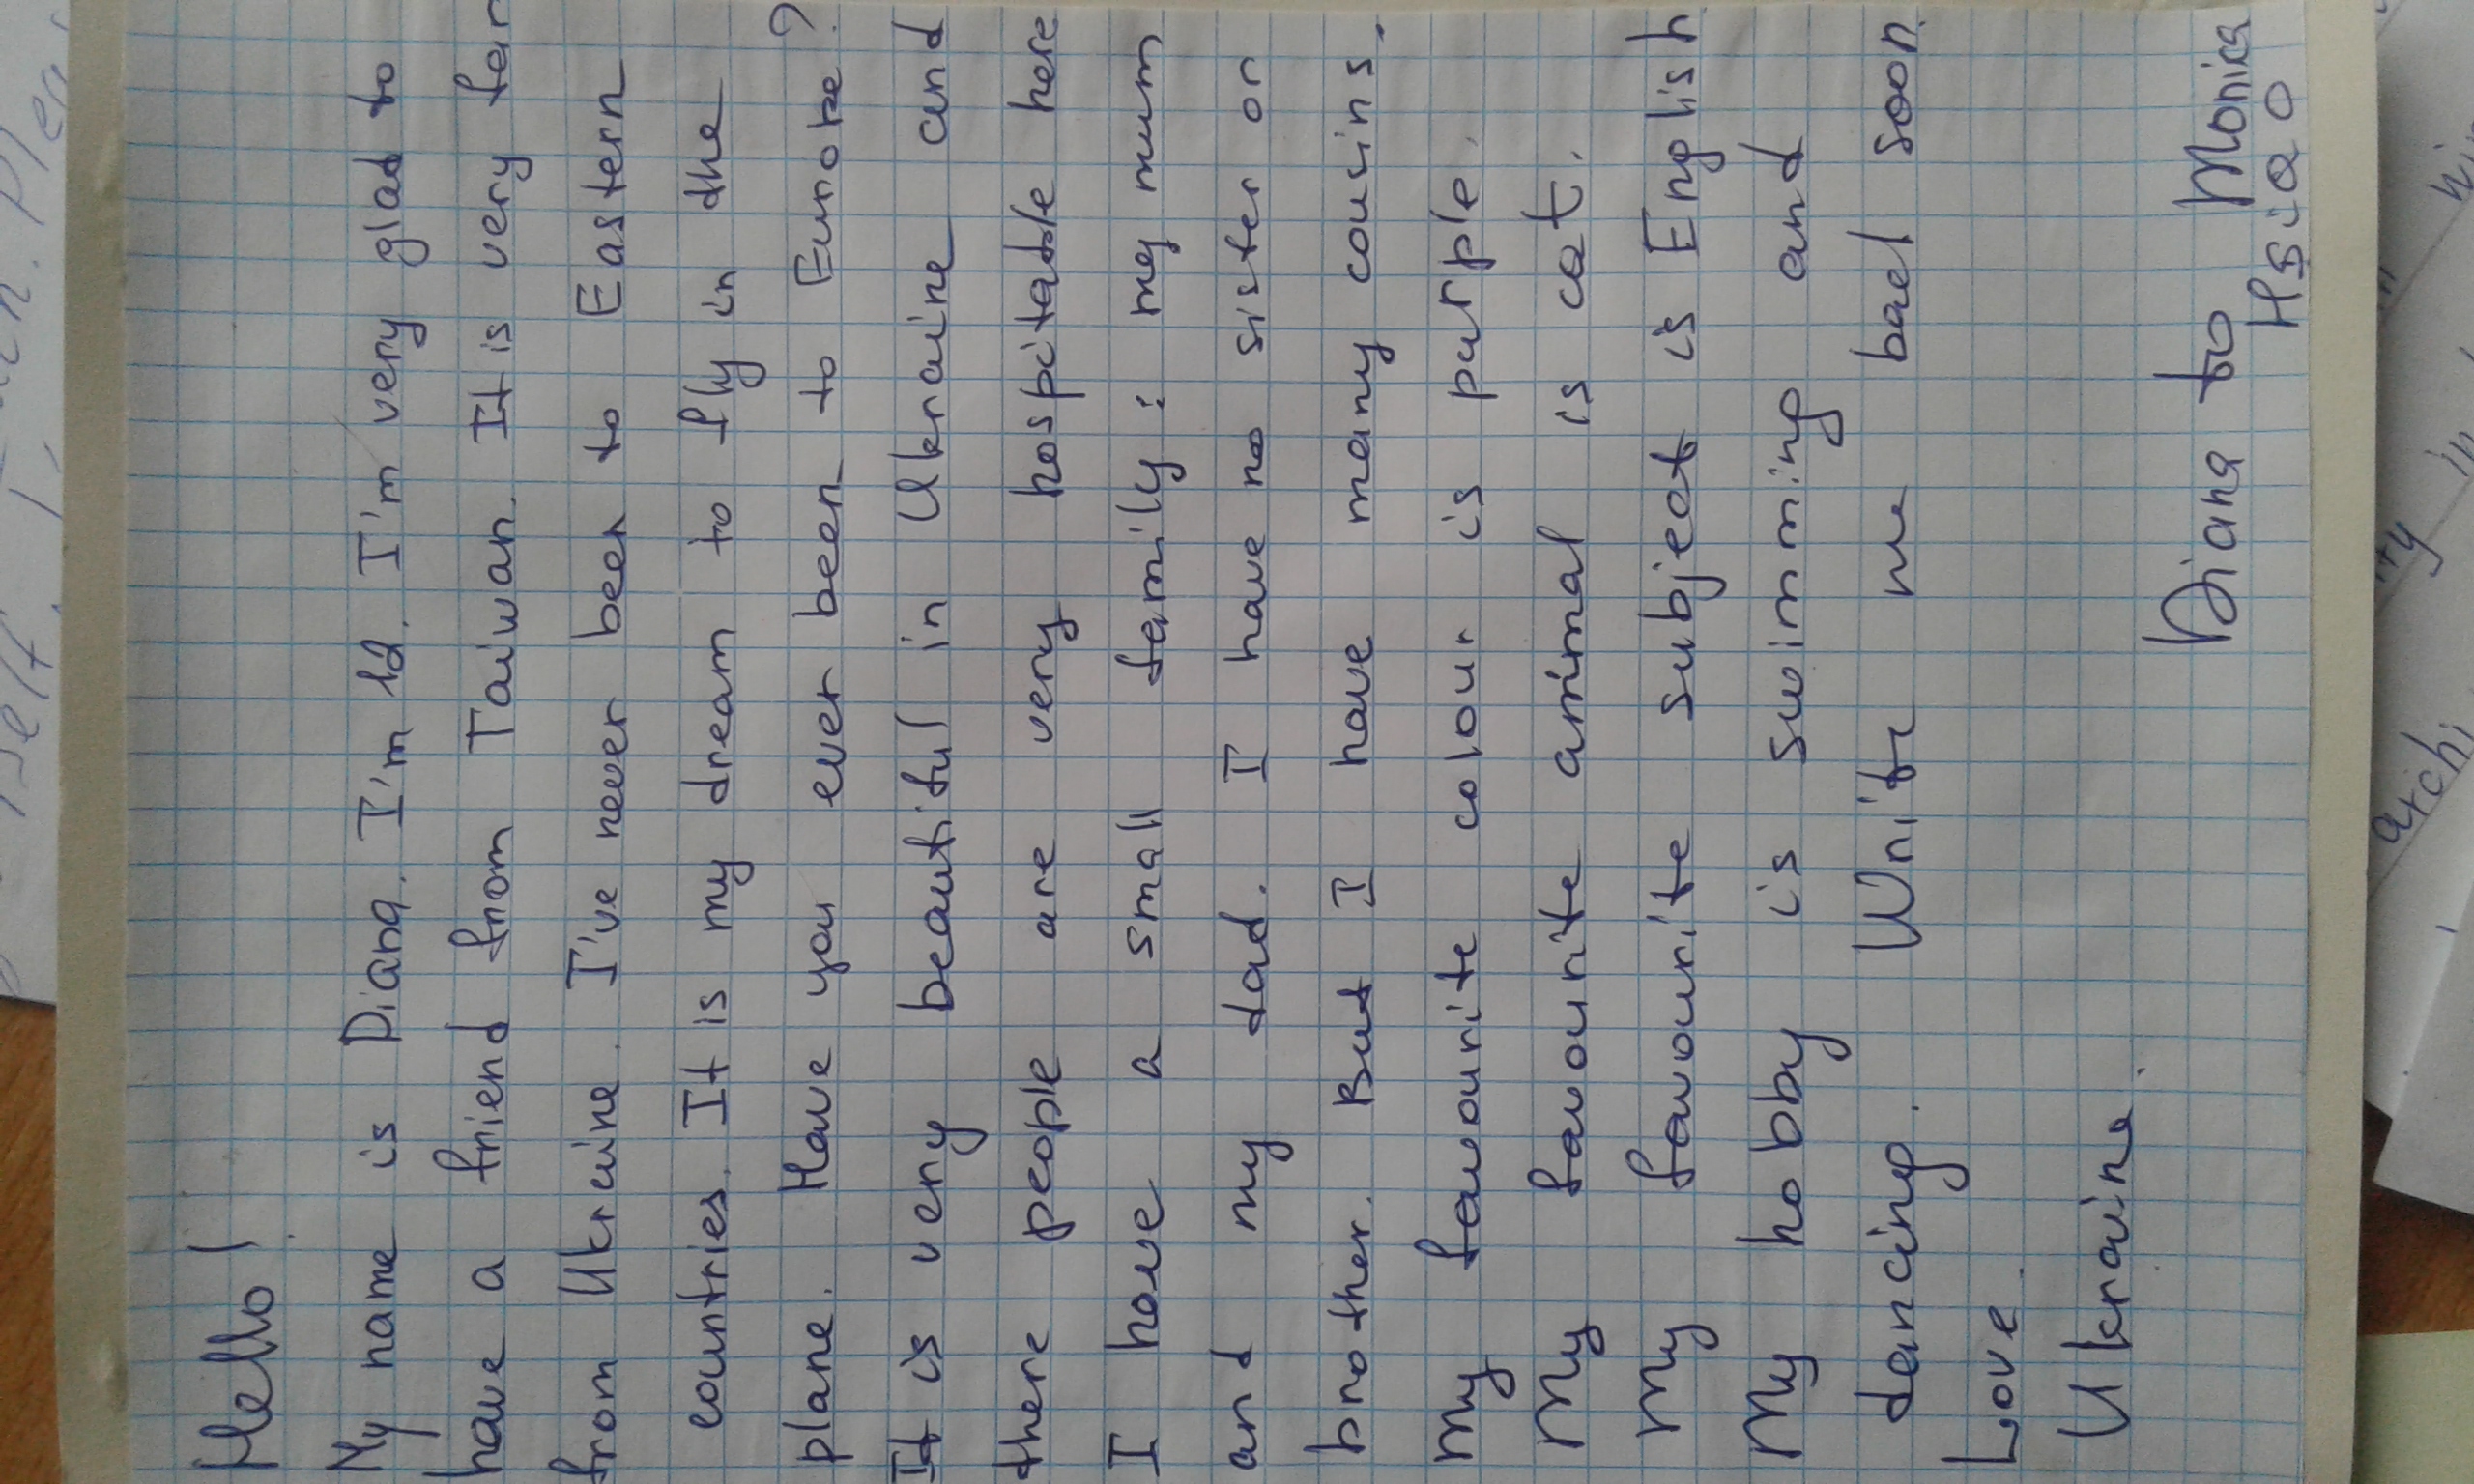 Hello!
My name is Diana. I'm 12. I'm very glad to
have a friend from Taiwan. It is very far
from Ukraine. I've never been to Eastern
countries. It is my dream to fly in the
plane. Have you ever been to Europe?
It is very beautiful in Ukraine and
there people are very hospitable here
I have a small family: my mum
and my dad. I have no sister or
brother. But I have many cousins.
My favourite colour is purple.
My favourite animal is cat.
My favourite subject is English
My hobby is swimming and
dancing. Write me back soon
Love.
Ukraine.
Diana to Monica
Hsiao